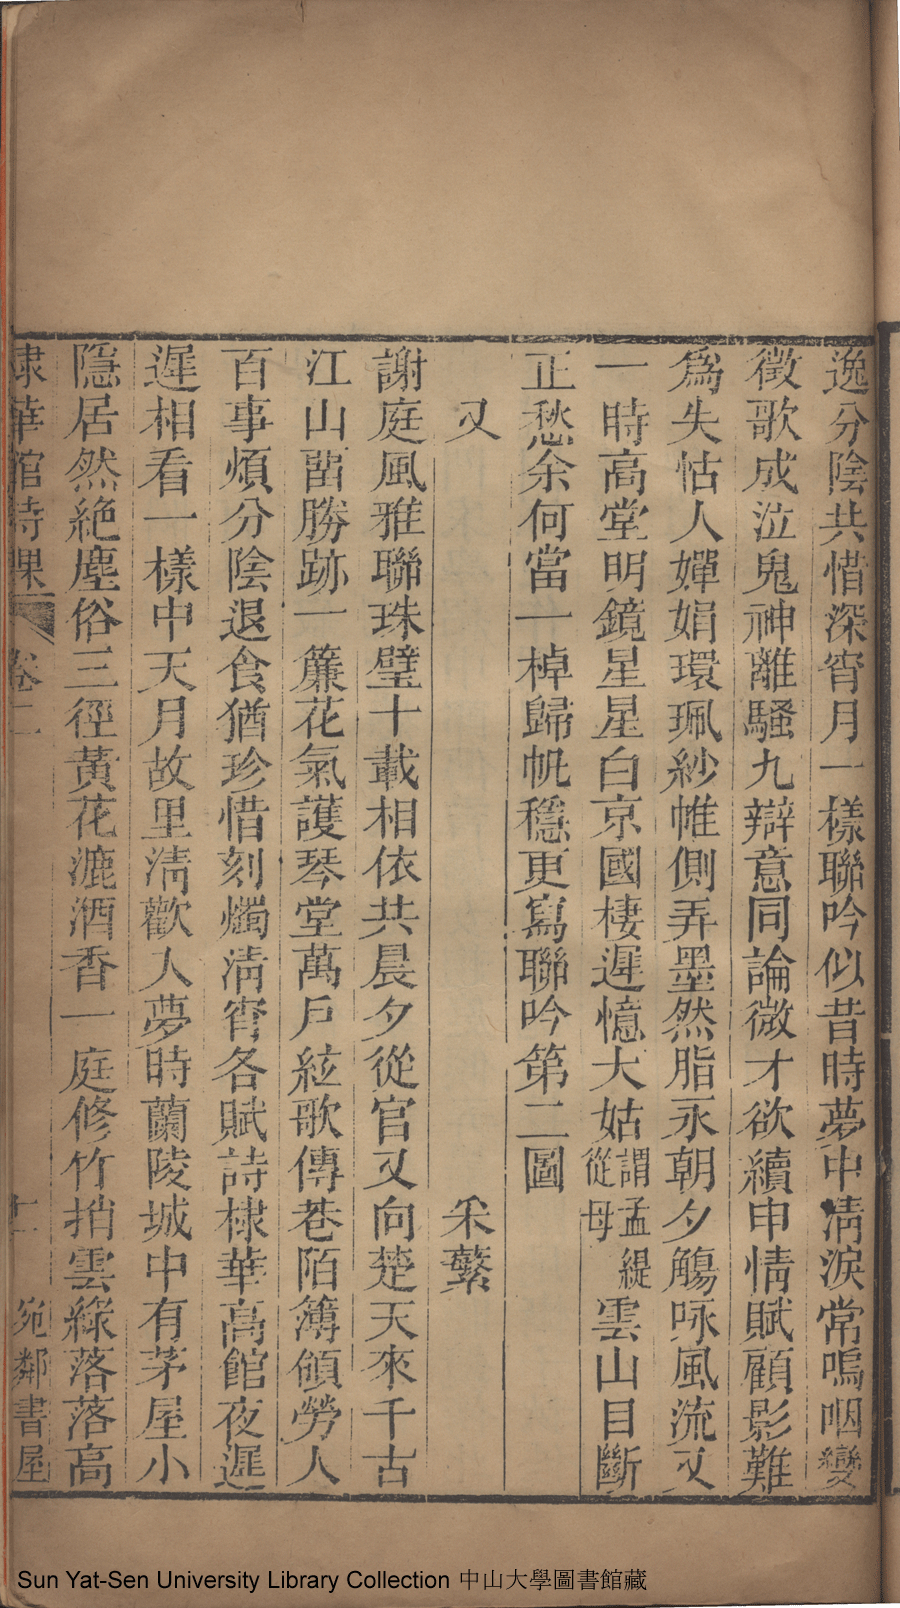 逸分陰共惜深宵月一樣聯吟似昔時夢中清淚常嗚咽變
徵歌成泣鬼神離騷九辯意同論微才欲續申情賦顧影難
為失怙人嬋娟環珮紗帷側弄墨然脂永朝夕觴咏風流又
一時高堂明鏡星星白京國棲遲憶大姑謂孟緹從母雲山目斷
正愁余何當一棹歸帆穩更寫聯吟第二圖
又　采蘩
謝庭風雅聯珠璧十載相依共晨夕從官又向楚天來千古
江山畱勝跡一簾花氣護琴堂萬戶絃歌傳巷陌簿領勞人
百事煩分陰退食猶珍惜刻燭清宵各賦詩棣華高館夜遲
遲相看一樣中天月故里清歡入夢時蘭陵城中有茅屋小
隱居然絶塵俗三徑黃花漉酒香一庭修竹捎雲綠落落高
棣華館詩課 卷二 十二 宛鄰書屋
Sun Yat-Sen University Library Collection 中山大學圖書館藏